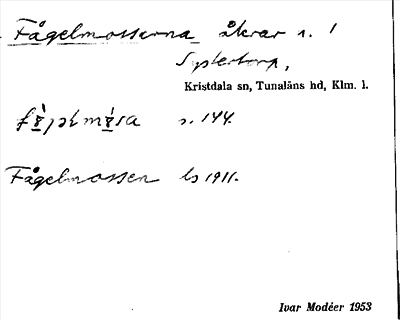 Fågelmosserna åkrar s. 1
Kristdala sn, Tunaläns hd, Klm. l.
s. 144.
Fågelmossen ls 1911.
Ivar Modéer 1953